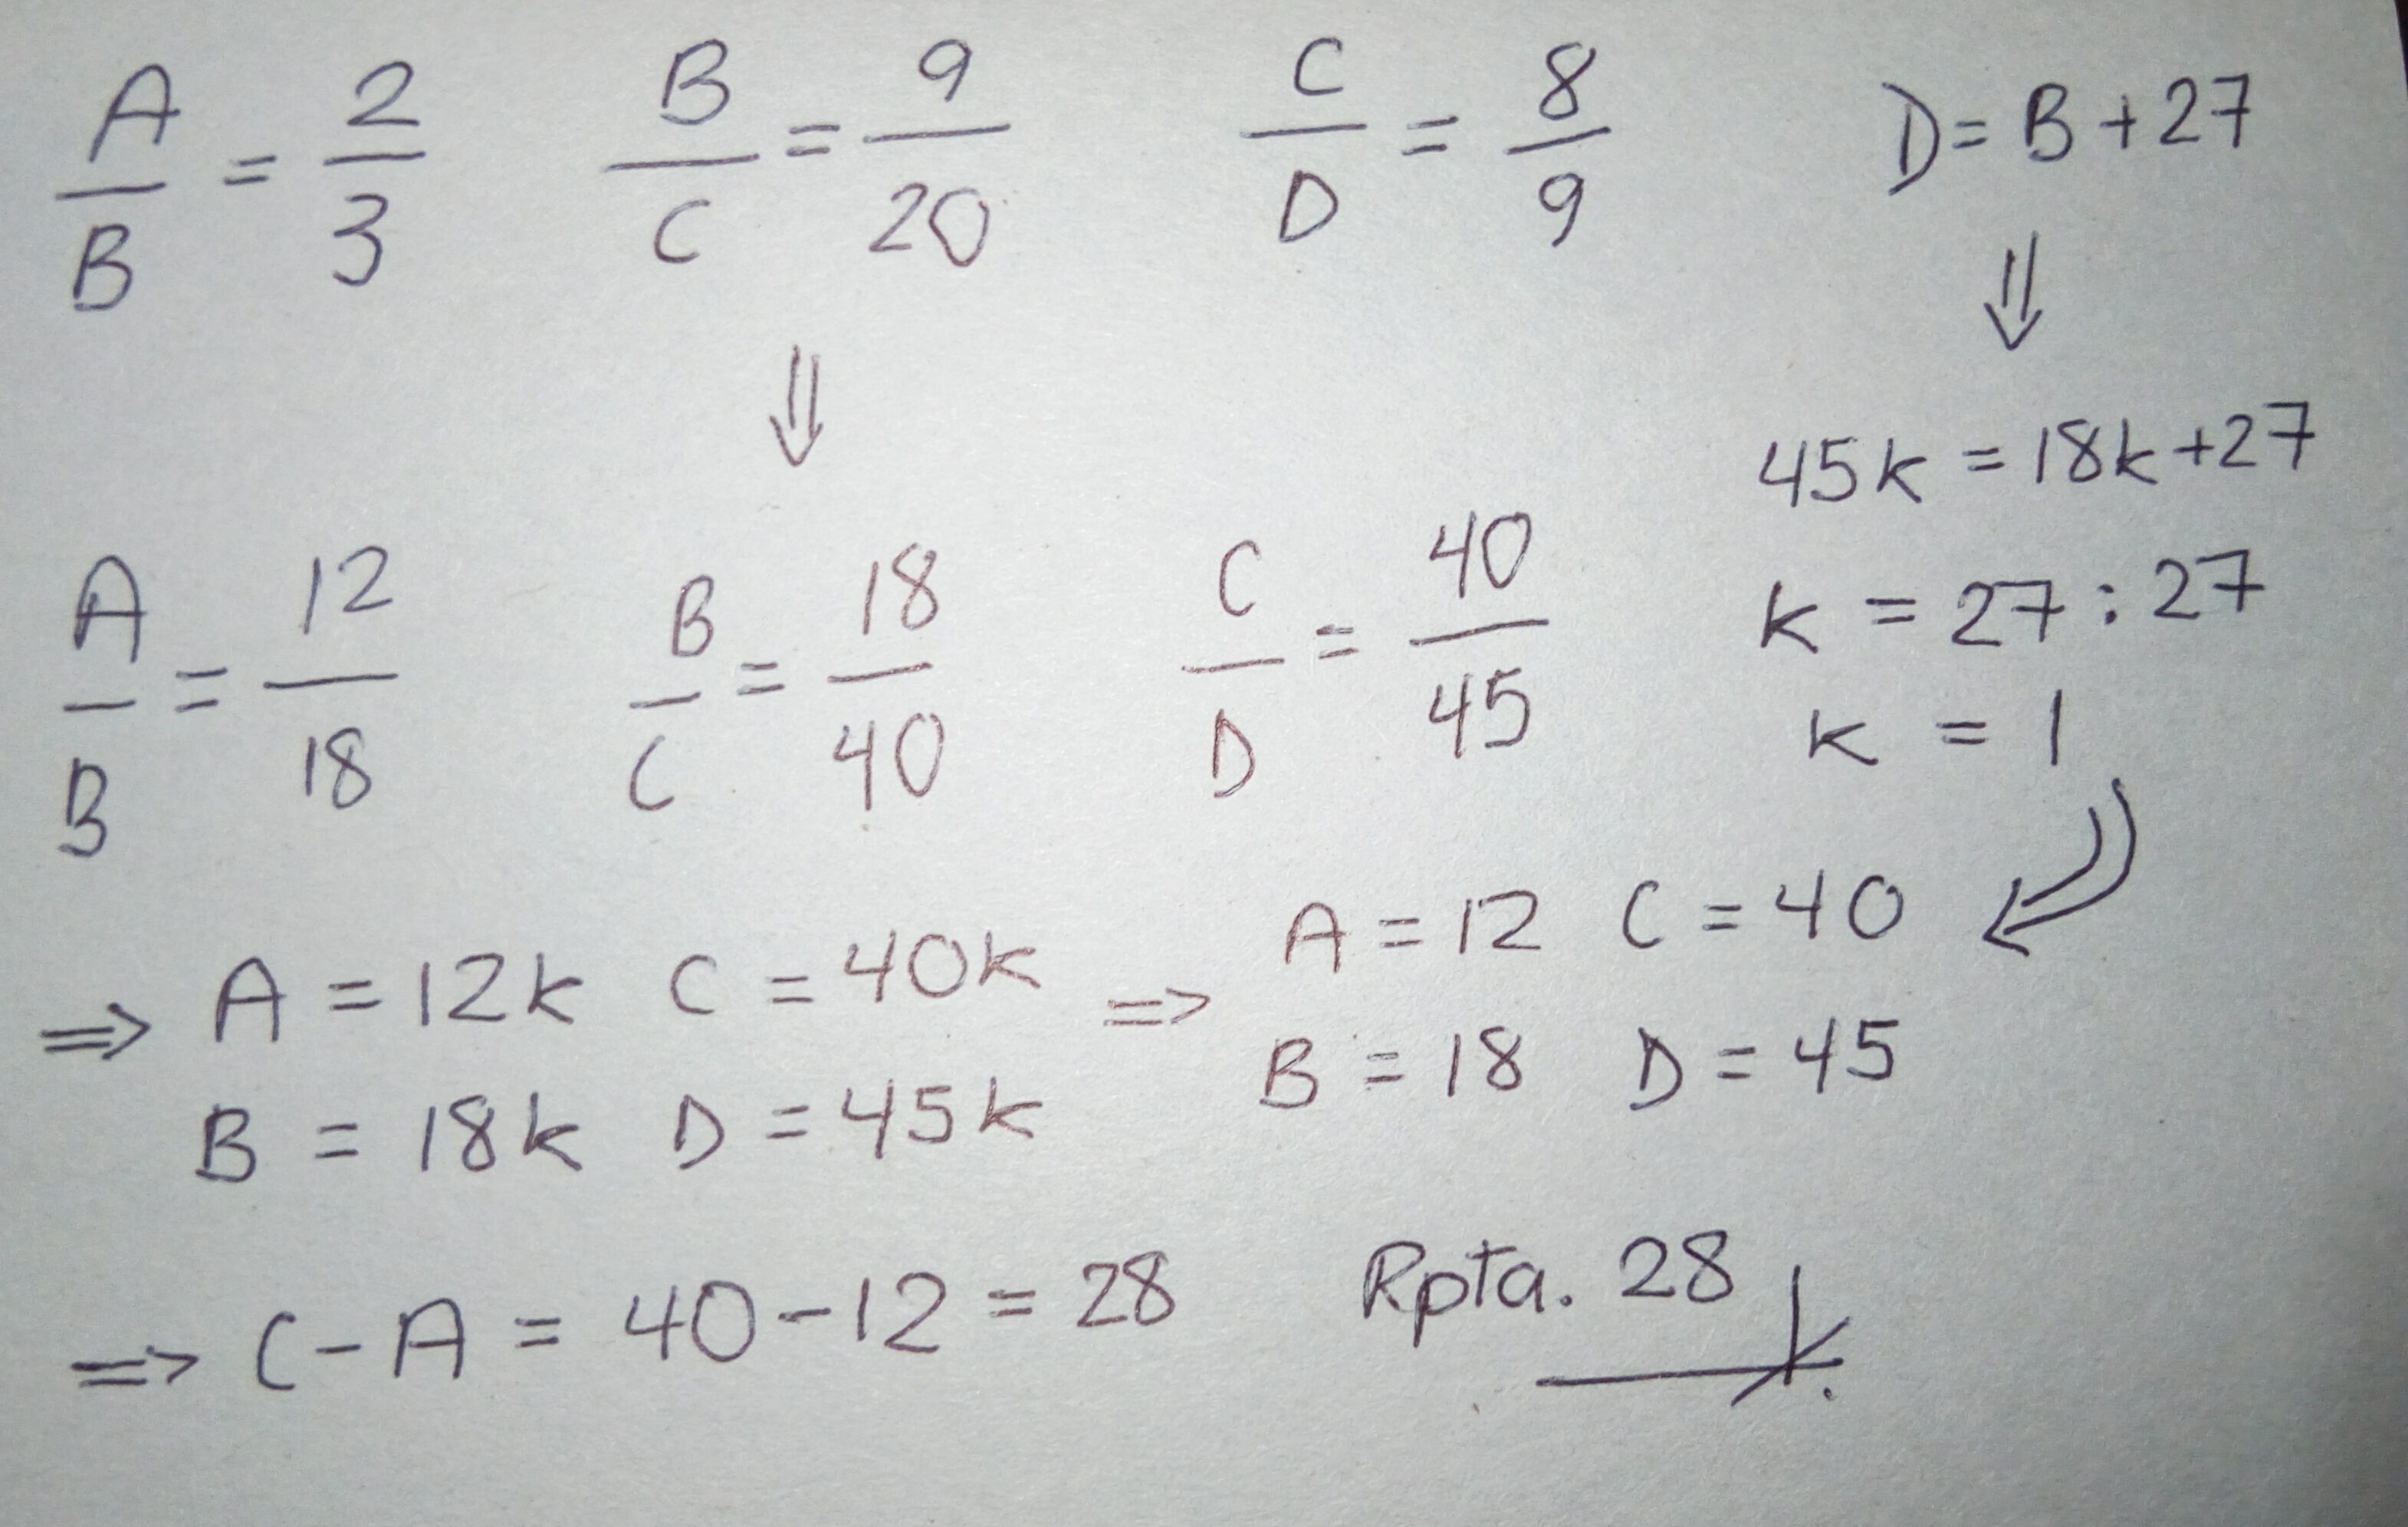 A/B = 2/3   B/C = 9/20   C/D = 8/9   D = B + 27
⇓   ⇓
45k = 18k + 27
A/B = 12/18   B/C = 18/40   C/D = 40/45   k = 27 : 27
k = 1
⇒ A = 12k   C = 40k   ⇒   A = 12   C = 40
B = 18k   D = 45k   B = 18   D = 45
⇒ C - A = 40 - 12 = 28   Rpta. 28